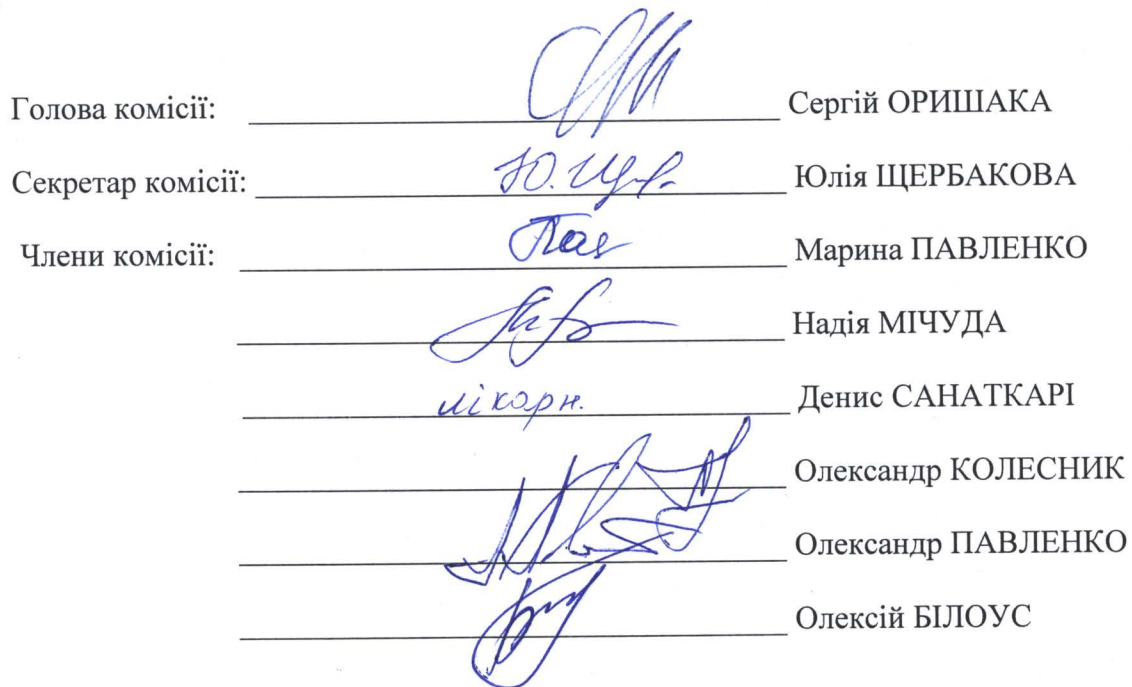 Голова комісії: Сергій ОРИШАКА
Секретар комісії: Ю. Щер Юлія ЩЕРБАКОВА
Члени комісії: Пав Марина ПАВЛЕНКО
Надія МІЧУДА
лікарн. Денис САНАТКАРІ
Олександр КОЛЕСНИК
Олександр ПАВЛЕНКО
Олексій БІЛОУС